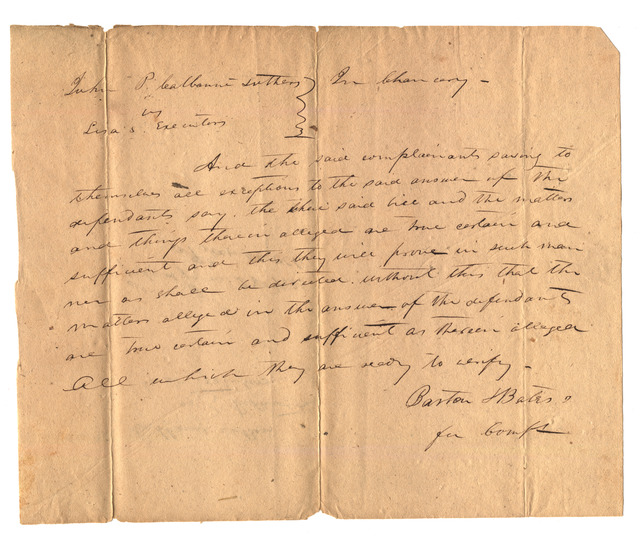 John P. Cabanné & others } In Chancery -
vs
Lisa's Executors
And the said complainants saving to
themselves all exceptions to the said answer of the
defendants say, the their said bill and the matters
and things therein alleged are true certain and
sufficient and this they will prove in such man
ner as shall be directed. without this that the
matters alleged in the answer of the defendants
are true certain and sufficient as therein alleged
All which they are ready to verify -
Barton & Bates
for Compts